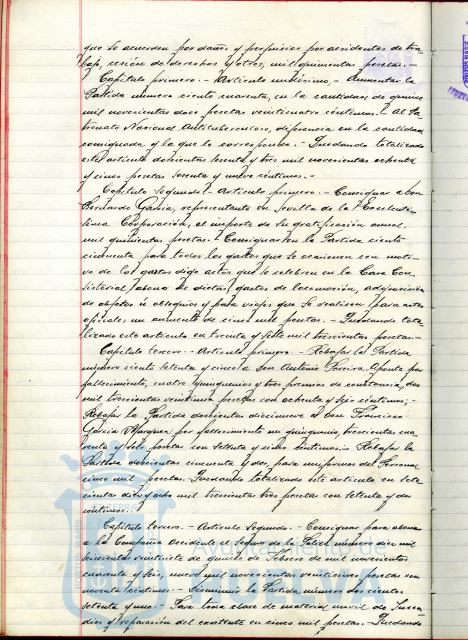 que se acuerden por daños y perjuicios por accidentes de tra-
bajo, cesión de derechos y otros, mil quinientas pesetas.-
Capítulo primero.- Artículo undécimo.- Aumentar la
Partida número ciento cuarenta, en la cantidad de quince
mil novecientas doce pesetas veinticuatro céntimos.- Al Pa-
tronato Nacional Antituberculoso, diferencia en la cantidad
consignada y la que le corresponde.- Quedando totalizado
este artículo doscientas setenta y tres mil novecientas ochenta
y cinco pesetas setenta y nueve céntimos.-
Capítulo Segundo.- Artículo primero.- Consignar a Don
Bernardo García, representante en Sevilla de la Excelentí-
sima Corporación, el importe de su gratificación anual,
mil quinientas pesetas.- Consignar en la Partida ciento
cincuenta para todos los gastos que se ocasionen con moti-
vo de los gastos digo actos que se celebren en la Casa Con-
sistorial, abono de dietas, gastos de locomoción, adquisición
de objetos u obsequios y para viajes que se realicen para actos
oficiales, un aumento de cinco mil pesetas.- Quedando tota-
lizado este artículo en treinta y siete mil trescientas pesetas.-
Capítulo tercero.- Artículo primero.- Rebajar la Partida
número ciento setenta y cinco a Don Antonio Pereira Aponte por
fallecimiento, cuatro quinquenios y tres premios de constancia, dos
mil trescientas veintiuna pesetas con ochenta y seis céntimos;-
Rebajar la Partida doscientas diecinueve a Don Francisco
García Márquez por fallecimiento un quinquenio, trescientas cua-
renta y siete pesetas con setenta y cinco céntimos.- Rebajar la
Partida doscientas cincuenta y dos, para uniformes del Personal
cinco mil pesetas. Quedando totalizado este artículo en sete-
cientas dieciocho mil trescientas tres pesetas con setenta y dos
céntimos.-
Capítulo tercero.- Artículo Segundo.- Consignar para abono
a la Compañía Occidente el Seguro de la Póliza número diez mil
seiscientas veintisiete de quince de Febrero de mil novecientos
cuarenta y seis, nueve mil novecientas veinticinco pesetas con
noventa céntimos.- Disminuir la Partida número doscientos
setenta y uno.- Para toda clase de material móvil de Incen-
dios y reparación del existente en cinco mil pesetas.- Quedando